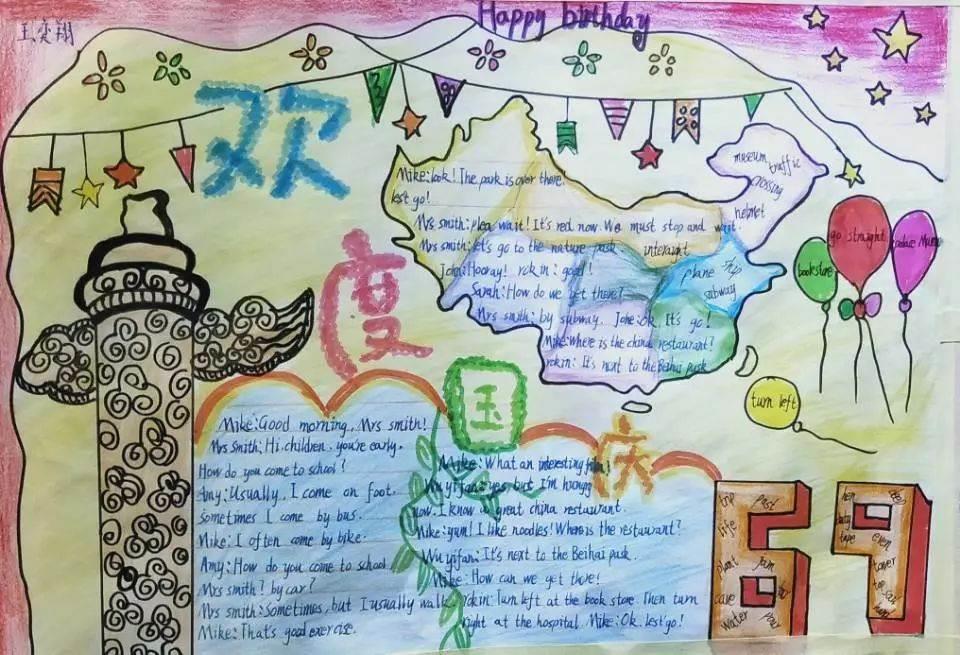 王奕翔
Happy birthday
欢
度
国
庆
Mike: look! The park is over there!
lest go!
Mrs smith: plea wait! It's red now. We must stop and wait.
Mrs smith: let's go to the nature park.
John: Hooray! rokin: good!
Sarah: How do we get there?
Mrs smith: by subway. Johe: ok. It's go!
Mike: Where is the china restaurant?
rokin: It's next to the Beihai pask.
museum traffic
crossing
helmet
plane ship
subway
bookstore
go straight
palace
turn left
Mike: Good morning, Mrs smith!
Mrs Smith: Hi. children. you're early.
How do you come to school?
Amy: Usually, I come on foot.
sometimes I come by bus.
Mike: I often come by bike.
Amy: How do you come to school
Mrs smith? by car?
Mrs smith: Sometimes, but I usually walk.
Mike: That's good exercise.
Mike: What an interesting film!
Wu yifan: yes, but I'm hungy
now. I know a great china restaurant.
Mike: yum! I like noodles! Where is the restaurant?
Wu yifan: It's next to the Beihai pask.
Mike: How can we get there!
rokin: Turn left at the book store. Then turn
right at the hospital. Mike: Ok. lest'go!
69
trip past
life
plant
cave
Water you
tape even